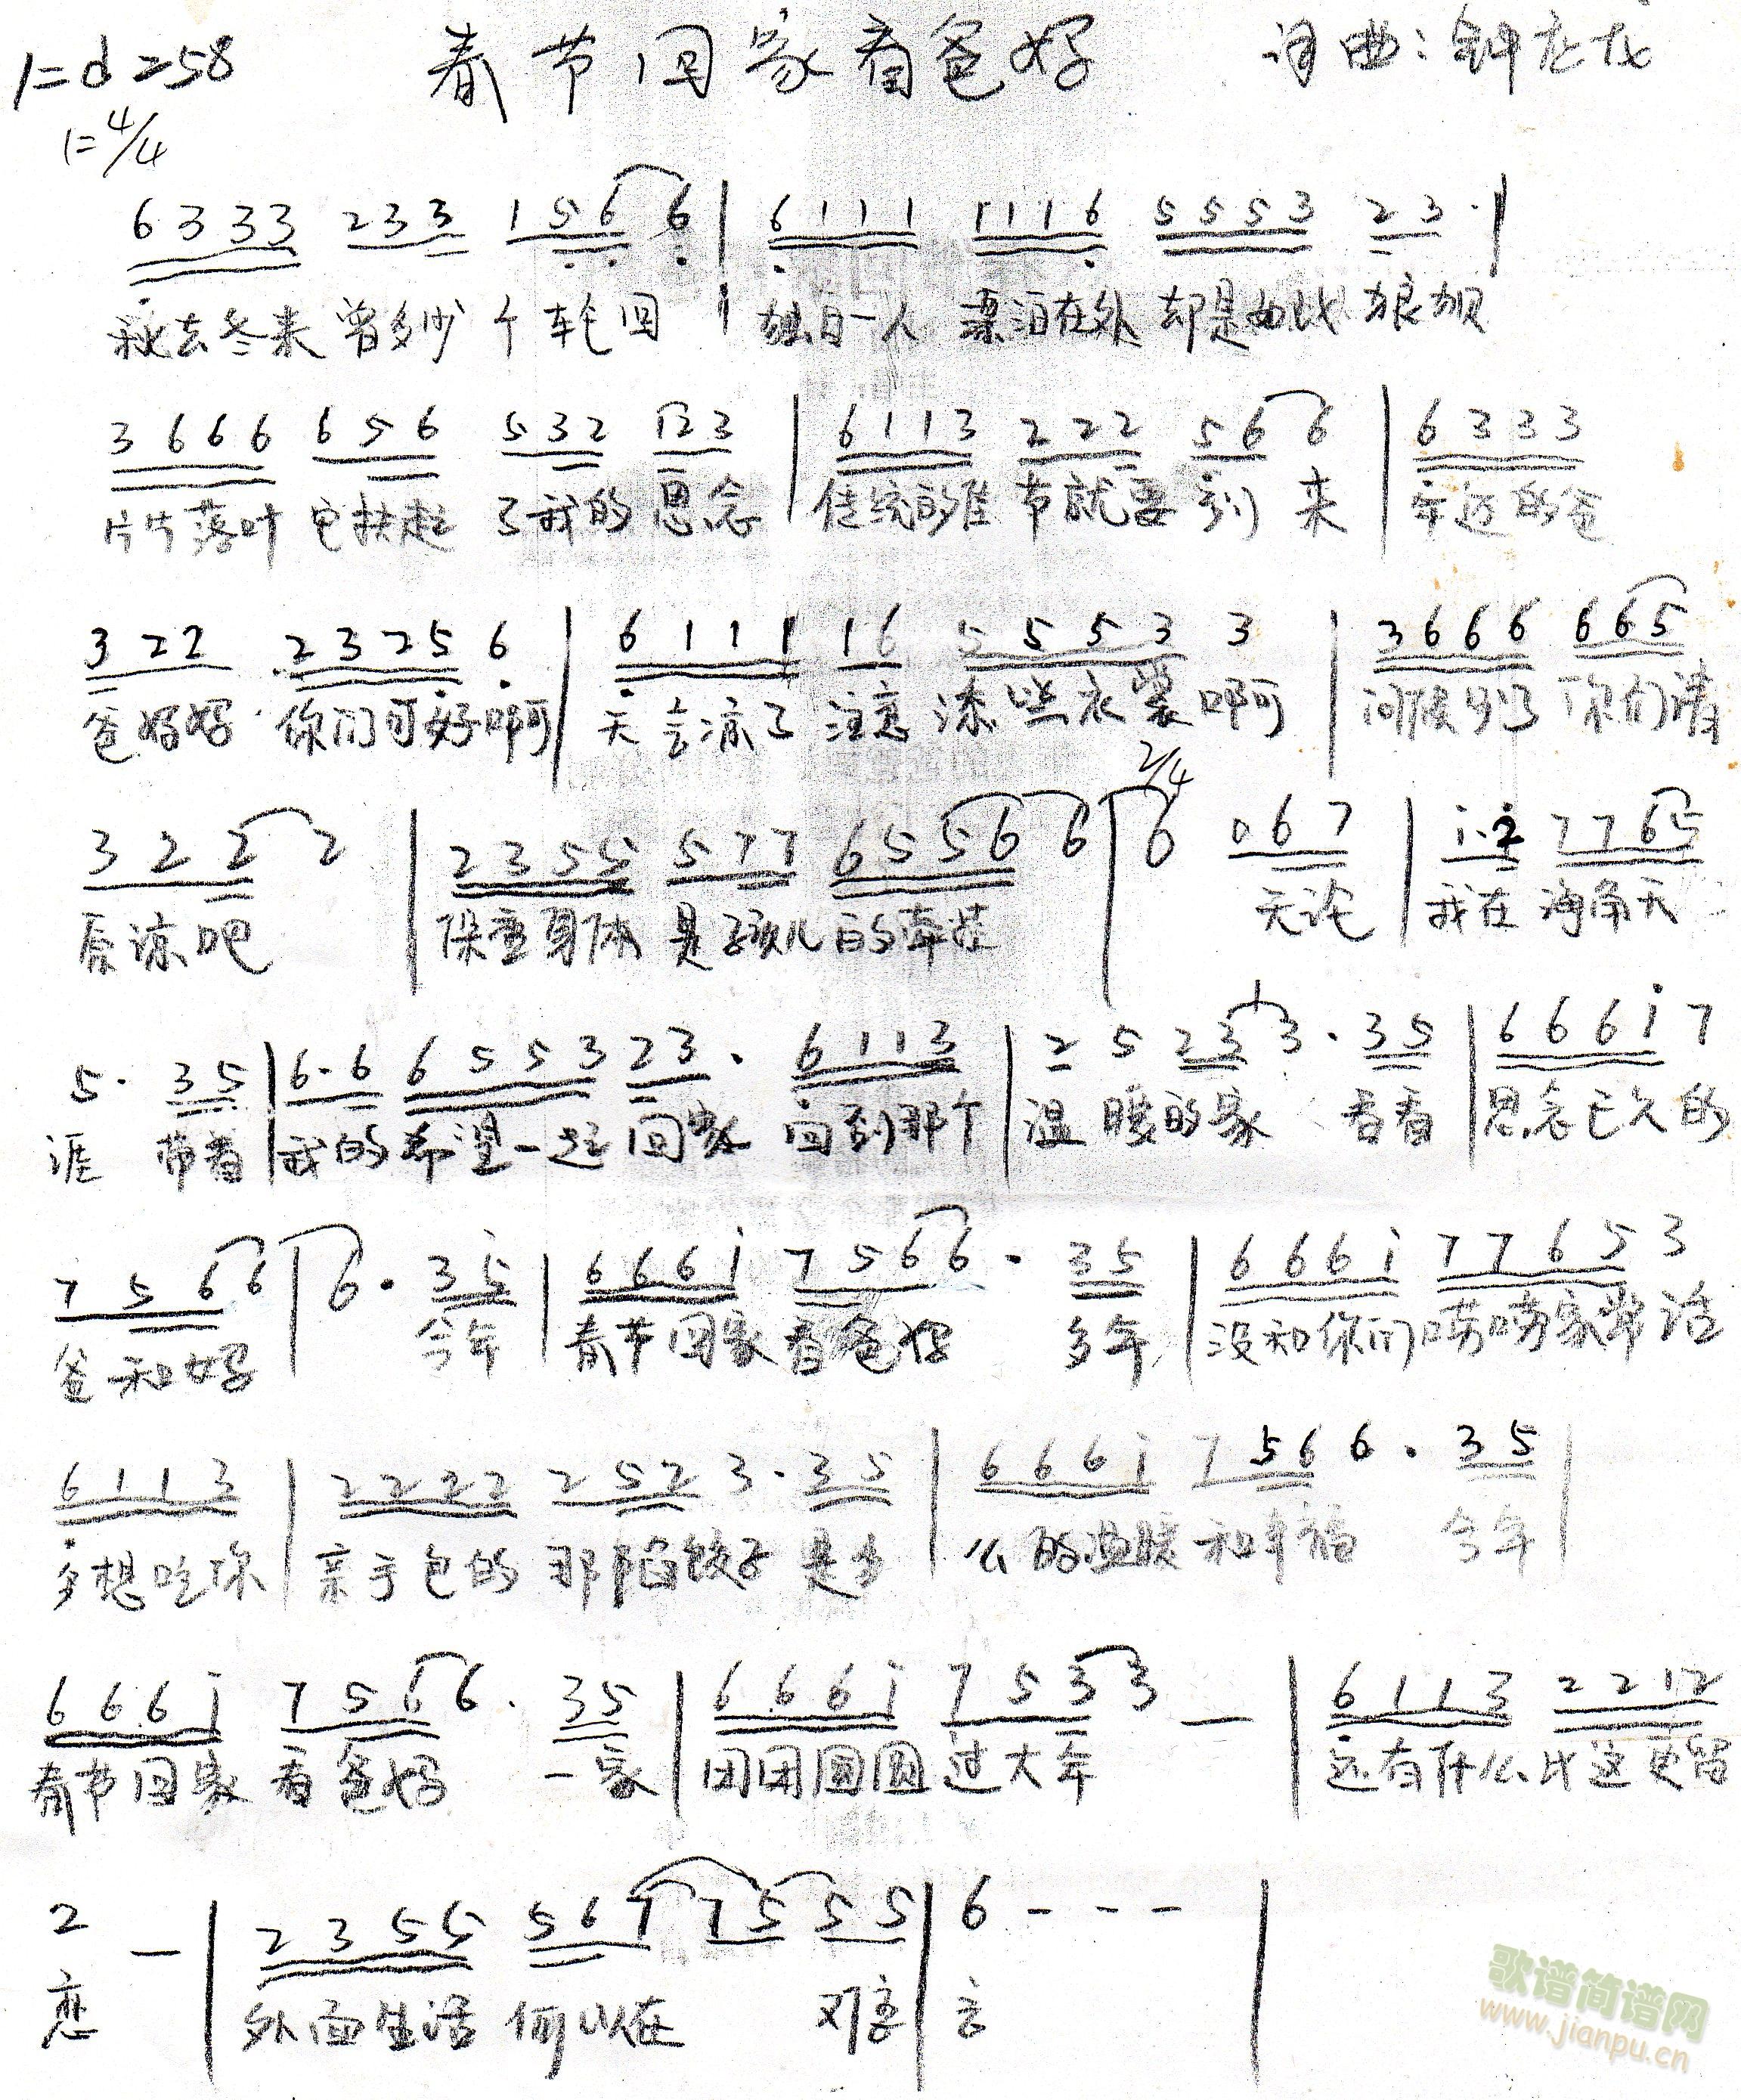 1=d=58 春节回家看爸妈 词曲:钟龙龙
1=4/4
6 3 3 3 2 3 3 1 5 6 6 | 6 1 1 1 1 1 1 6 5 5 5 3 2 3 · |
秋去冬来 曾多少 个 轮回 | 独自一人 漂泊在外 却是如此 狼狈
3 6 6 6 6 5 6 5 3 2 1 2 3 | 6 1 1 3 2 2 2 5 6 6 | 6 3 3 3
片片落叶 了我的 思念 | 传统的佳 节就要 到 来 | 年迈的爸
3 2 2 2 3 2 5 6 | 6 1 1 1 1 6 5 5 5 3 3 | 3 6 6 6 6 6 5
爸妈妈 你们可好啊 | 天会凉了 注意 添些衣裳 啊 | 问候少了 你们请
2/4
3 2 2 2 | 2 3 5 5 5 7 7 6 5 5 6 6 | 6 0 6 7 | i · 2 7 7 6 5
原谅吧 | 保重身体 是孩儿的牵挂 | 无论 | 我在 海角天
5 · 3 5 | 6 · 6 6 5 5 3 2 3 · 6 1 1 3 | 2 5 2 3 3 · 3 5 | 6 6 6 i 7
涯 带着 | 我的希望一起 回家 回到那个 | 温暖的家 看看 | 思念已久的
7 5 6 6 | 6 · 3 5 | 6 6 6 i 7 5 6 6 · 3 5 | 6 6 6 i 7 7 6 5 3
爸和妈 | 今年 | 春节回家 看爸妈 多年 | 没和你们唠唠家常话
6 1 1 3 | 2 2 2 2 2 5 2 3 · 3 5 | 6 6 6 i 7 5 6 6 · 3 5 |
多想吃你 | 亲手包的 那陷饺子 是多 | 么的温暖 和幸福 今年 |
6 6 6 i 7 5 6 6 · 3 5 | 6 6 6 i 7 5 3 3 — | 6 1 1 3 2 2 1 2
春节回家 看爸妈 一家 | 团团圆圆 过大年 | 还有什么比这更留
2 — | 2 3 5 5 5 6 7 7 5 5 5 | 6 - - - |
恋 | 外面生活 何以在
歌谱简谱网
www.jianpu.cn